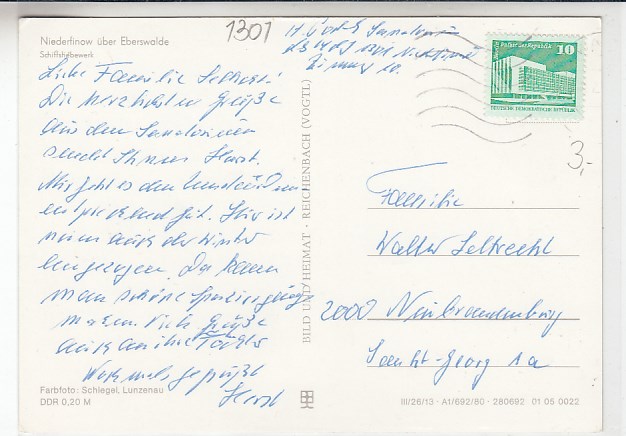 Niederfinow über Eberswalde
Schiffshebewerk
1301
H. Sanatorium
Zimmer 10.
Palast der Republik 10
DEUTSCHE DEMOKRATISCHE REPUBLIK
3,-
Liebe Familie
Die herzlichsten Grüße
aus dem Sanatorium
sendet Ihnen Horst.
Mir geht es den Umständen
entsprechend gut. Hier ist
nun auch der Winter
eingezogen. Da kann
man schöne Spaziergänge
machen. Viele Grüße
auch an ihre Tochter
Nochmals gegrüßt
Horst
BILD UND HEIMAT · REICHENBACH (VOGTL)
Familie
Walter
2000 Neubrandenburg
Sankt-Georg 1a
Farbfoto: Schlegel, Lunzenau
DDR 0,20 M
III/26/13 · A1/692/80 · 280692 01 05 0022